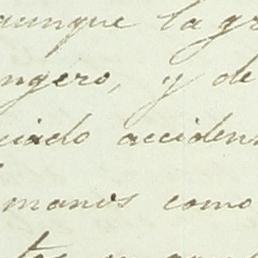 aunque la gr
ngéro, y de
ciado acciden
manos como